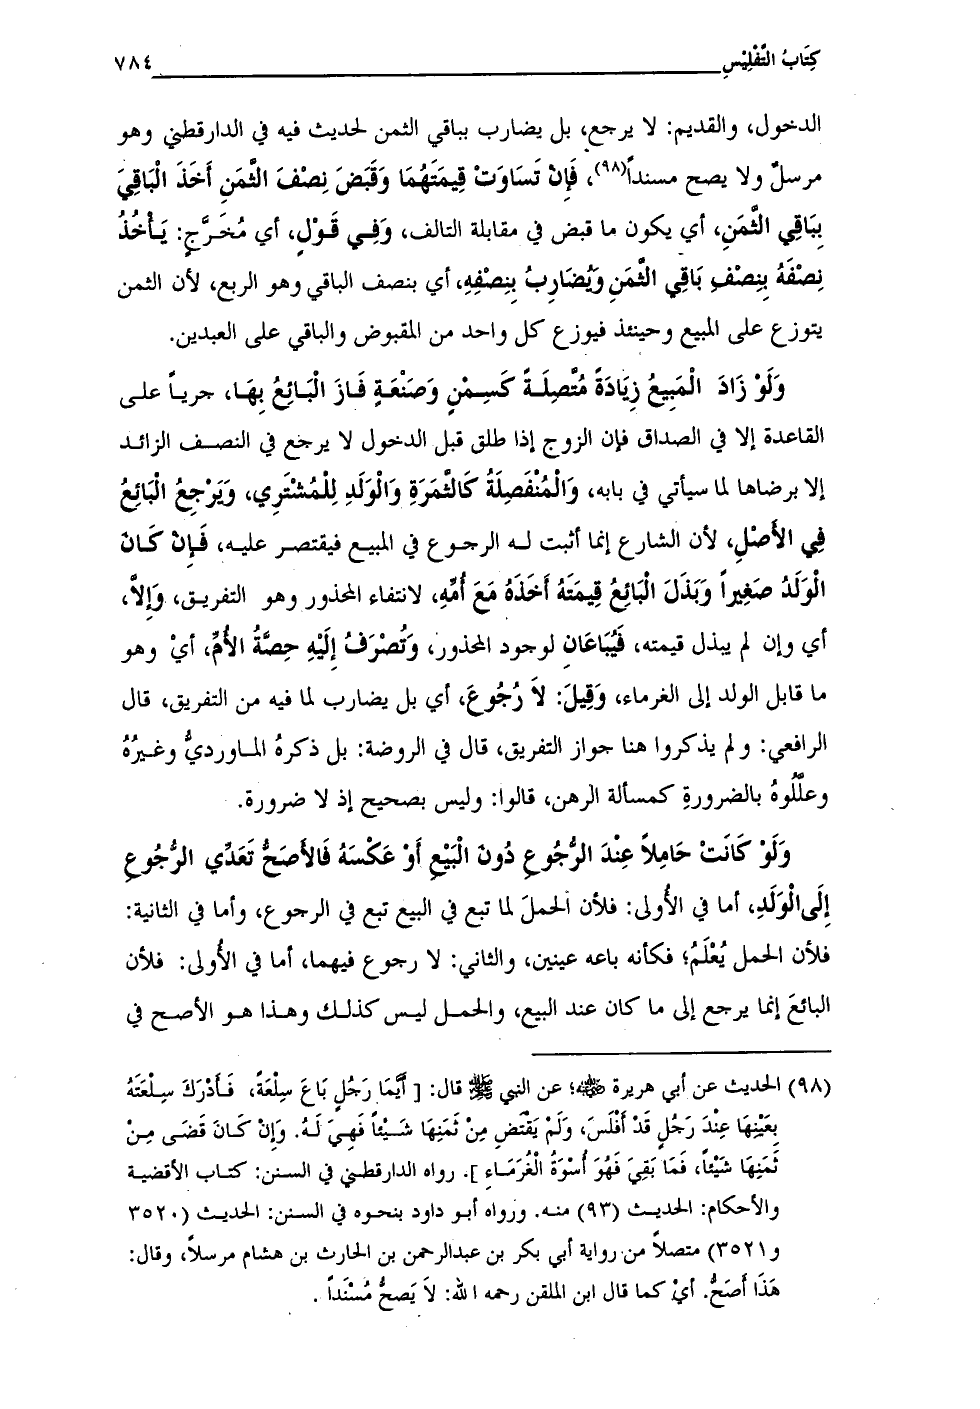 كِتَابُ التَّفْلِيْسِ ٧٨٤
الدخول، والقديم: لا يرجع، بل يضارب بباقي الثمن لحديث فيه في الدارقطني وهو
مرسلٌ ولا يصح مسنداً(٩٨)، فَإِنْ تَسَاوَتْ قِيمَتُهُمَا وَقَبَضَ نِصْفَ الثَّمَنِ أَخَذَ الْبَاقِيَ
بِبَاقِي الثَّمَنِ، أي يكون ما قبض في مقابلة التالف، وَفِي قَوْلٍ، أي مُخَرَّجٍ: يَأْخُذُ
نِصْفَهُ بِنِصْفِ بَاقِي الثَّمَنِ وَيُضَارِبُ بِنِصْفِهِ، أي بنصف الباقي وهو الربع، لأن الثمن
يتوزع على المبيع وحينئذ فيوزع كل واحد من المقبوض والباقي على العبدين.
وَلَوْ زَادَ الْمَبِيعُ زِيَادَةً مُتَّصِلَةً كَسِمْنٍ وَصَنْعَةٍ فَازَ الْبَائِعُ بِهَا، جرياً على
القاعدة إلا في الصداق فإن الزوج إذا طلق قبل الدخول لا يرجع في النصف الزائد
إلا برضاها لما سيأتي في بابه، وَالْمُنْفَصِلَةُ كَالثَّمَرَةِ وَالْوَلَدِ لِلْمُشْتَرِي، وَيَرْجِعُ الْبَائِعُ
فِي الأَصْلِ، لأن الشارع إنما أثبت له الرجوع في المبيع فيقتصر عليه، فَإِنْ كَانَ
الْوَلَدُ صَغِيراً وَبَذَلَ الْبَائِعُ قِيمَتَهُ أَخَذَهُ مَعَ أُمِّهِ، لانتفاء المحذور وهو التفريق، وَإِلاَّ،
أي وإن لم يبذل قيمته، فَيُبَاعَانِ لوجود المحذور، وَتُصْرَفُ إِلَيْهِ حِصَّةُ الأُمِّ، أيْ وهو
ما قابل الولد إلى الغرماء، وَقِيلَ: لاَ رُجُوعَ، أي بل يضارب لما فيه من التفريق، قال
الرافعي: ولم يذكروا هنا جواز التفريق، قال في الروضة: بل ذكرهُ الماورديُّ وغيرُهُ
وعلَّلُوهُ بالضرورةِ كمسألة الرهن، قالوا: وليس بصحيح إذ لا ضرورة.
وَلَوْ كَانَتْ حَامِلاً عِنْدَ الرُّجُوعِ دُونَ الْبَيْعِ أَوْ عَكْسَهُ فَالأَصَحُّ تَعَدِّي الرُّجُوعِ
إِلَى الْوَلَدِ، أما في الأُولى: فلأن الحملَ لما تبع في البيع تبع في الرجوع، وأما في الثانية:
فلأن الحمل يُعْلَمُ؛ فكأنه باعه عينين، والثاني: لا رجوع فيهما، أما في الأُولى: فلأن
البائعَ إنما يرجع إلى ما كان عند البيع، والحمل ليس كذلك وهذا هو الأصح في
(٩٨) الحديث عن أبي هريرة ﵁؛ عن النبي ﷺ قال: [ أَيُّمَا رَجُلٍ بَاعَ سِلْعَةً، فَأَدْرَكَ سِلْعَتَهُ
بِعَيْنِهَا عِنْدَ رَجُلٍ قَدْ أَفْلَسَ، وَلَمْ يَقْتَضِ مِنْ ثَمَنِهَا شَيْئاً فَهِيَ لَهُ. وَإِنْ كَانَ قَضَى مِنْ
ثَمَنِهَا شَيْئاً، فَمَا بَقِيَ فَهُوَ أُسْوَةُ الْغُرَمَاءِ ]. رواه الدارقطني في السنن: كتاب الأقضية
والأحكام: الحديث (٩٣) منه. ورواه أبو داود بنحوه في السنن: الحديث (٣٥٢٠
و٣٥٢١) متصلاً من رواية أبي بكر بن عبدالرحمن بن الحارث بن هشام مرسلاً، وقال:
هَذَا أَصَحُّ. أيْ كما قال ابن الملقن رحمه الله: لاَ يَصحُّ مُسْنَداً .